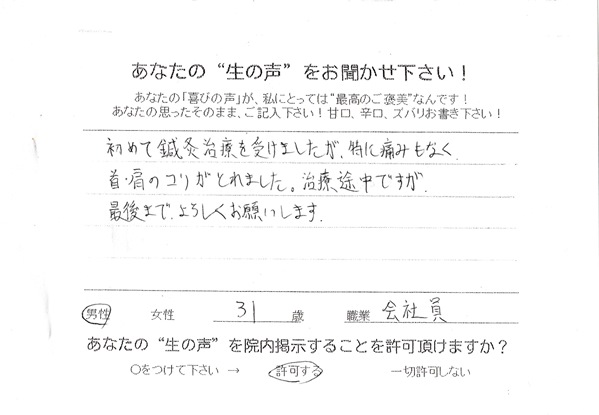 あなたの “生の声” をお聞かせ下さい！
あなたの「喜びの声」が、私にとっては“最高のご褒美”なんです！
あなたの思ったそのまま、ご記入下さい！甘口、辛口、ズバリお書き下さい！
初めて鍼灸治療を受けましたが、特に痛みもなく
首・肩のコリがとれました。治療途中ですが、
最後まで、よろしくお願いします。
男性 女性 31 歳 職業 会社員
あなたの “生の声” を院内掲示することを許可頂けますか？
○をつけて下さい → 許可する 一切許可しない